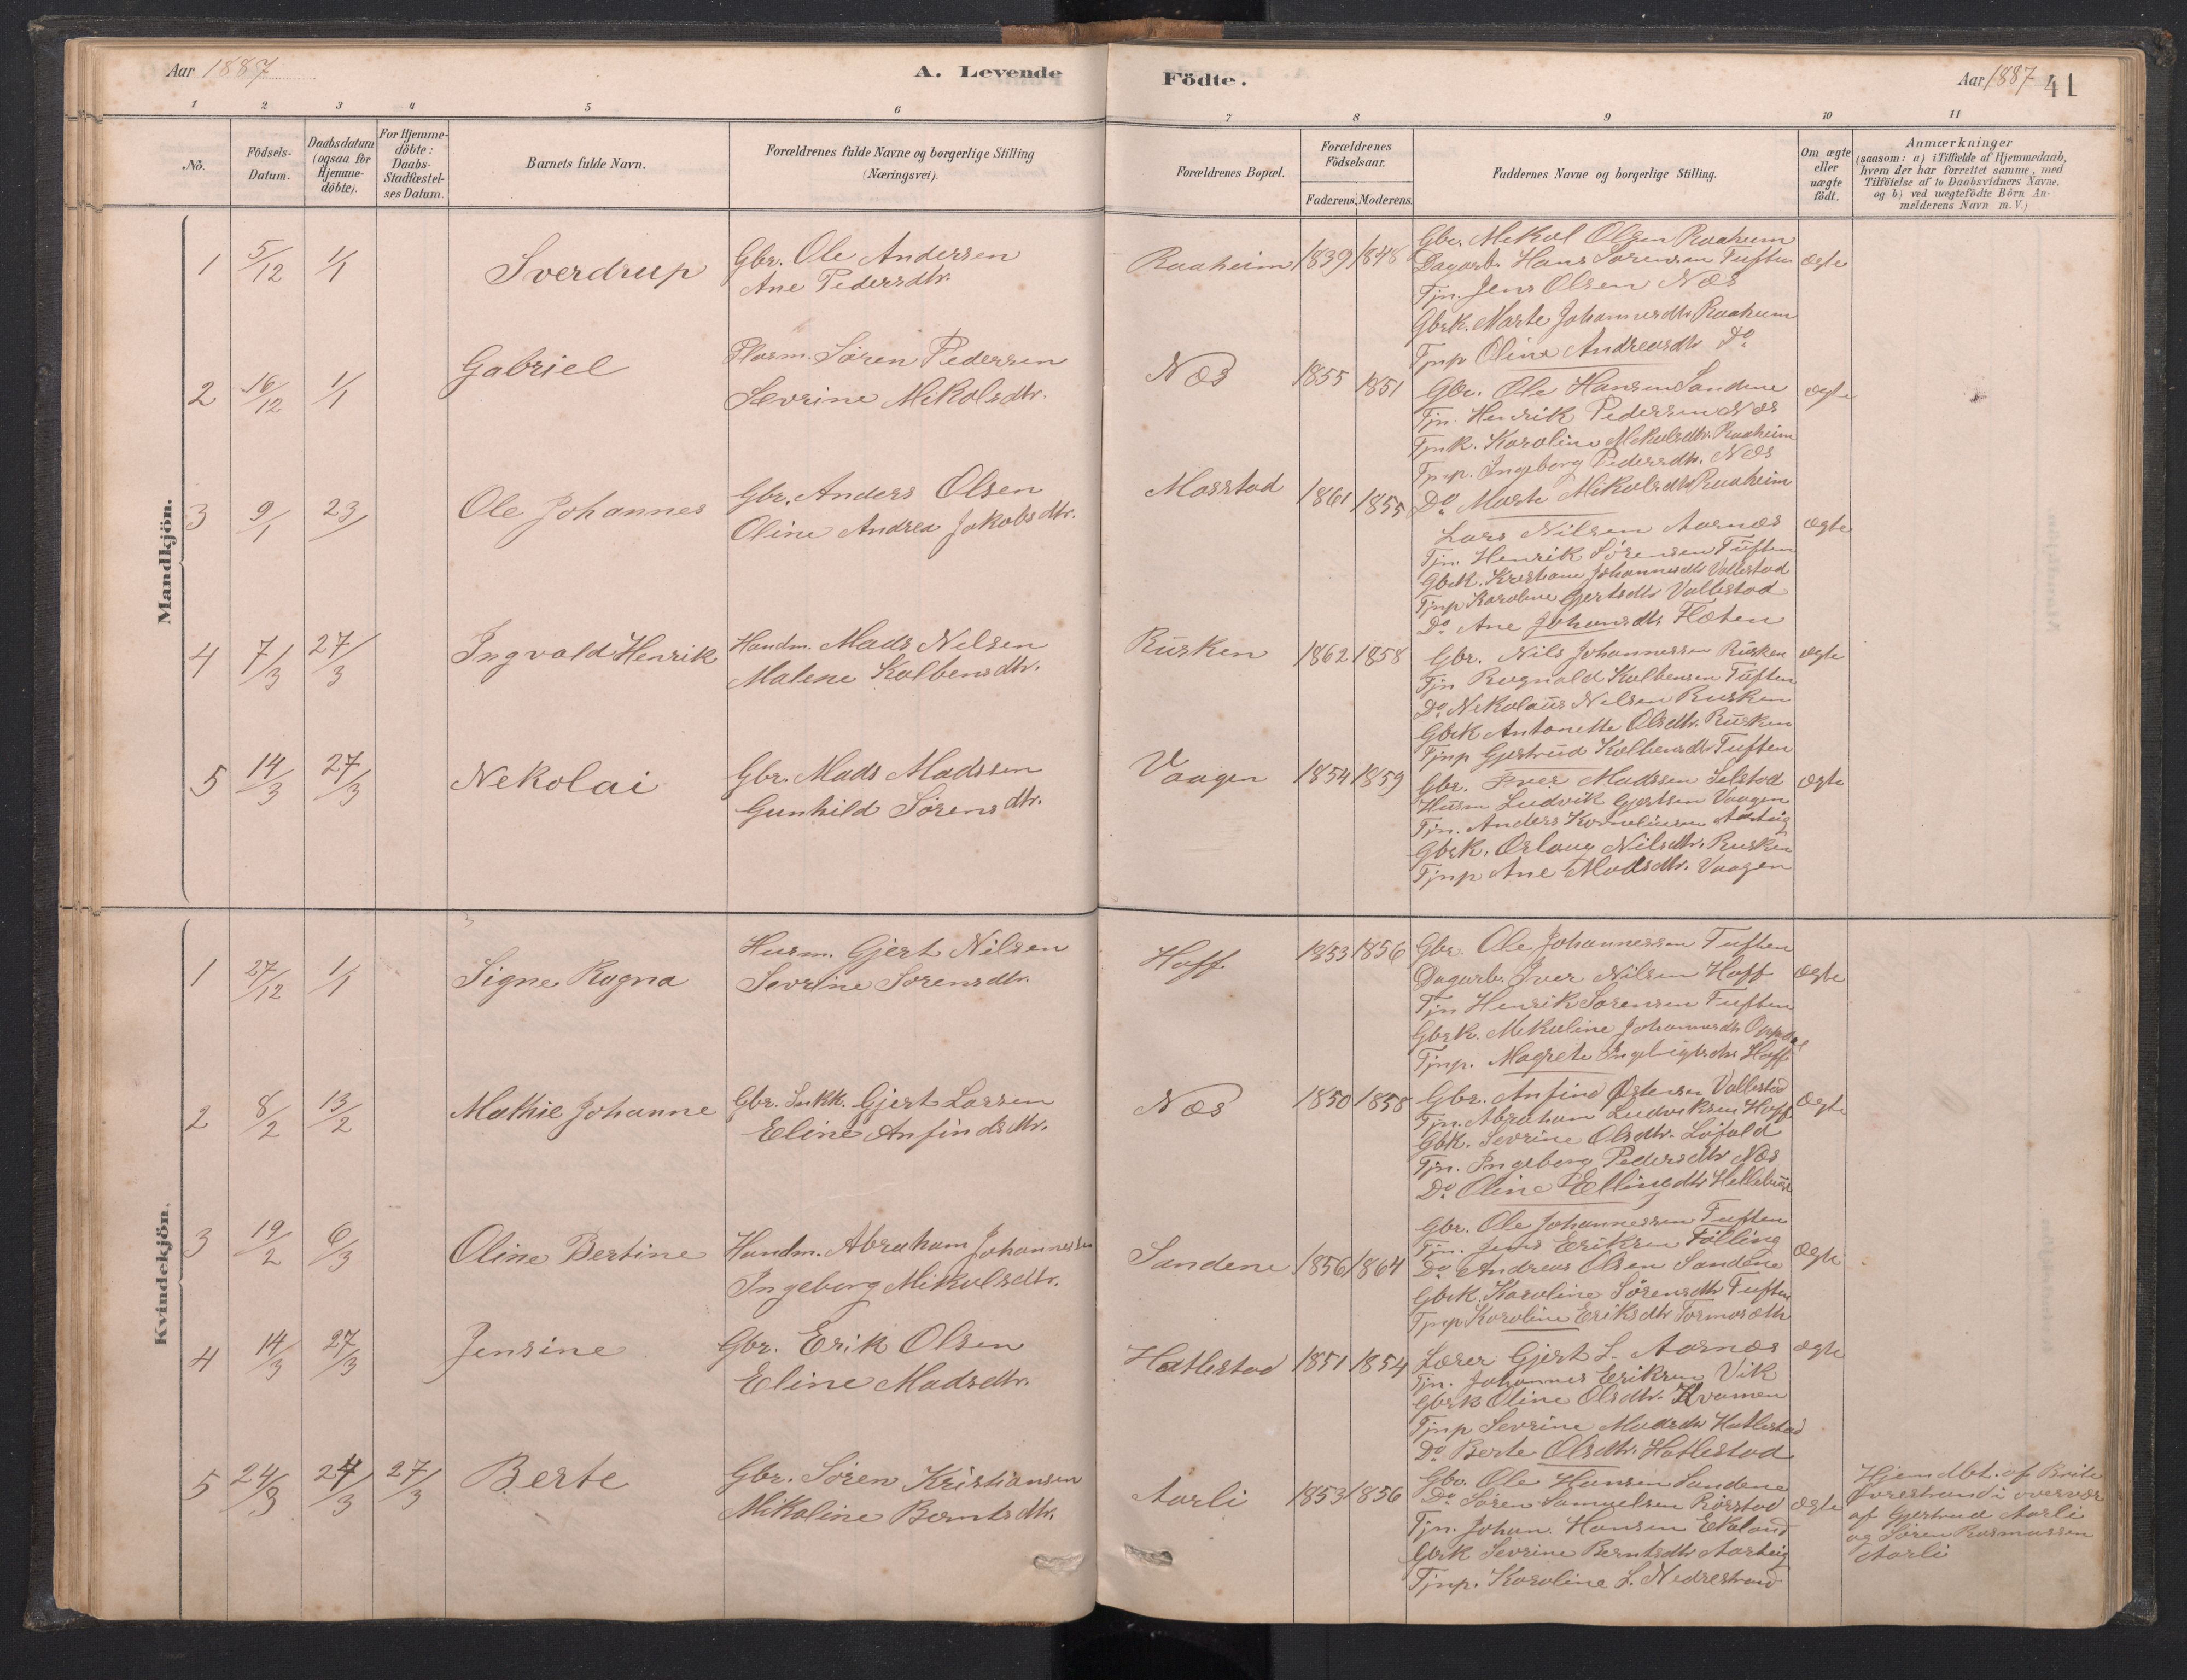 Aar 1887
A. Levende
Födte.
Aar 1887 41
1 2 3 4 5 6 7 8 9 10 11
No.
Födsels-Datum.
Daabsdatum (ogsaa for Hjemme-döbte).
For Hjemme-döbte: Daabs-Stadfæstel-ses Datum.
Barnets fulde Navn.
Forældrenes fulde Navne og borgerlige Stilling (Næringsvei).
Forældrenes Bopæl.
Forældrenes Födselsaar.
Faderens. Moderens.
Faddernes Navne og borgerlige Stilling.
Om ægte eller uægte födt.
Anmærkninger
(saasom: a) i Tilfælde af Hjemmedaab, hvem der har forrettet samme, med Tilföielse af to Daabsvidners Navne, og b) ved uægtefödte Börn An-melderens Navn m. V.)
Mandkjön.
1 5/12 1/1 Sverdrup Gbr. Ole Andersen
Ane Pedersdtr.
Raaheim 1839 1848 Gbr. Mekal Olsen Raaheim ægte
Dagarb. Hans Sørensen Tuften
Tjn. Jens Olsen Næs
Gbrk. Marte Johannesdtr Raaheim
Tjnp Oline Andreasdtr Do
2 16/12 1/1 Gabriel Plasm. Søren Pedersen
Sevrine Mikalsdtr.
Næs 1855 1851 Gbr. Ole Hansen Sandene ægte
Tjn. Henrik Pedersen Næs
Tjnk. Karoline Mekalsdtr. Raaheim
Tjnp. Ingeborg Pedersdtr. Næs
Do Marte Mikalsdtr Raaheim
3 9/1 23/1 Ole Johannes Gbr. Anders Olsen
Oline Andrea Jakobsdtr.
Masstad 1861 1855
Lars Nilsen Aarnæs ægte
Tjn. Henrik Sørensen Tuften
Gbrk. Kristiane Johannesdtr Vallestad
Tjnp Karoline Gjertsdtr Vallestad
Do Ane Johansdtr Flæten
4 7/3 27/3 Ingvald Henrik Handm. Mads Nilsen
Malene Kolbensdtr.
Rusken 1862 1858 Gbr. Nils Johannessen Rusken ægte
Tjn Ragnald Kolbensen Tuften
Do Nekolaus Nilsen Rusken
Gbrk Antonette Olsdtr. Rusken
Tjnp Gjertrud Kolbensdtr Tuften
5 14/3 27/3 Nekolai Gbr. Mads Madssen
Gunhild Sørensdtr.
Vaagen 1854 1859 Gbr. Iver Madssen Selstad ægte
Husm Ludvik Gjertsen Vaagen
Tjn. Anders Korneliusen Aasteig
Gbrk. Oslaug Nilsdtr. Rusken
Tjnp Ane Madsdtr. Vaagen
Kvindekjön.
1 27/12 1/1 Signe Ragna Husm. Gjert Nilsen
Sevrine Sørensdtr.
Hoff 1853 1856 Gbr. Ole Johannessen Tuften
Dagarb. Iver Nilsen Hoff ægte
Tjn Henrik Sørensen Tuften
Gbrk. Mekaline Johannesdtr Oppdal
Tjnp. Magrete Ingebrigtsdtr Hoff
2 8/2 13/2 Mathie Johanne Gbr. Snkk. Gjert Larsen
Eline Anfindsdtr.
Næs 1850 1858 Gbr. Anfind Østensen Vallestad ægte
Tjn. Abraham Ludviksen Hoff
Gbk. Sevrine Olsdtr. Løfald
Tjn. Ingeborg Pedersdtr Næs
Do Oline Ellingsdtr Hellebust
3 19/2 6/3 Oline Bertine Handm. Abraham Johannessen
Ingeborg Mikalsdtr.
Sandene 1856 1864 Gbr. Ole Johannessen Tuften
Tjn. Jens Eriksen Fölling
Do Andreas Olsen Sandene ægte
Gbrk. Karoline Sørensdtr Tuften
Tjnp Karoline Eriksdtr Tormosæth
4 14/3 27/3 Jensine Gbr. Erik Olsen
Eline Madsdtr.
Hatlestad 1851 1854 Lærer Gjert L. Aarnæs ægte
Tjn. Johannes Eriksen Vik
Gbrk Oline Olsdtr. Kvamen
Tjnp Sevrine Madsdtr Hatlestad
Do Berte Olsdtr. Hatlestad
5 24/3 24/3 27/3 Berte Gbr. Søren Kristiansen
Mikaline Berntsdtr.
Aarli 1853 1856 Gbr. Ole Hansen Sandene
Do Søren Samuelsen Rörstad ægte
Tjn. Johan Hansen Ekeland
Gbrk Sevrine Berntsdtr Aarteig
Tjnp. Karoline L. Nedrestrand
Hjemdbt. af Brite
Øvrestrand i overvær
af Gjertrud Aarli
og Søren Rasmussen
Aarli